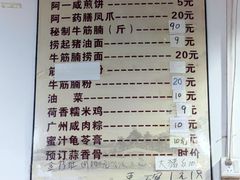 阿一咸煎饼 5元
阿一药膳凤爪 20元
秘制牛筋腩(斤) 90元
捞起猪油面 9元
牛筋腩捞面 元
牛筋腩粉 20元
油菜 10元
荷香糯米鸡 9元
广州咸肉粽 10元
蜜汁龟苓膏 元
预订蒜香骨 时价